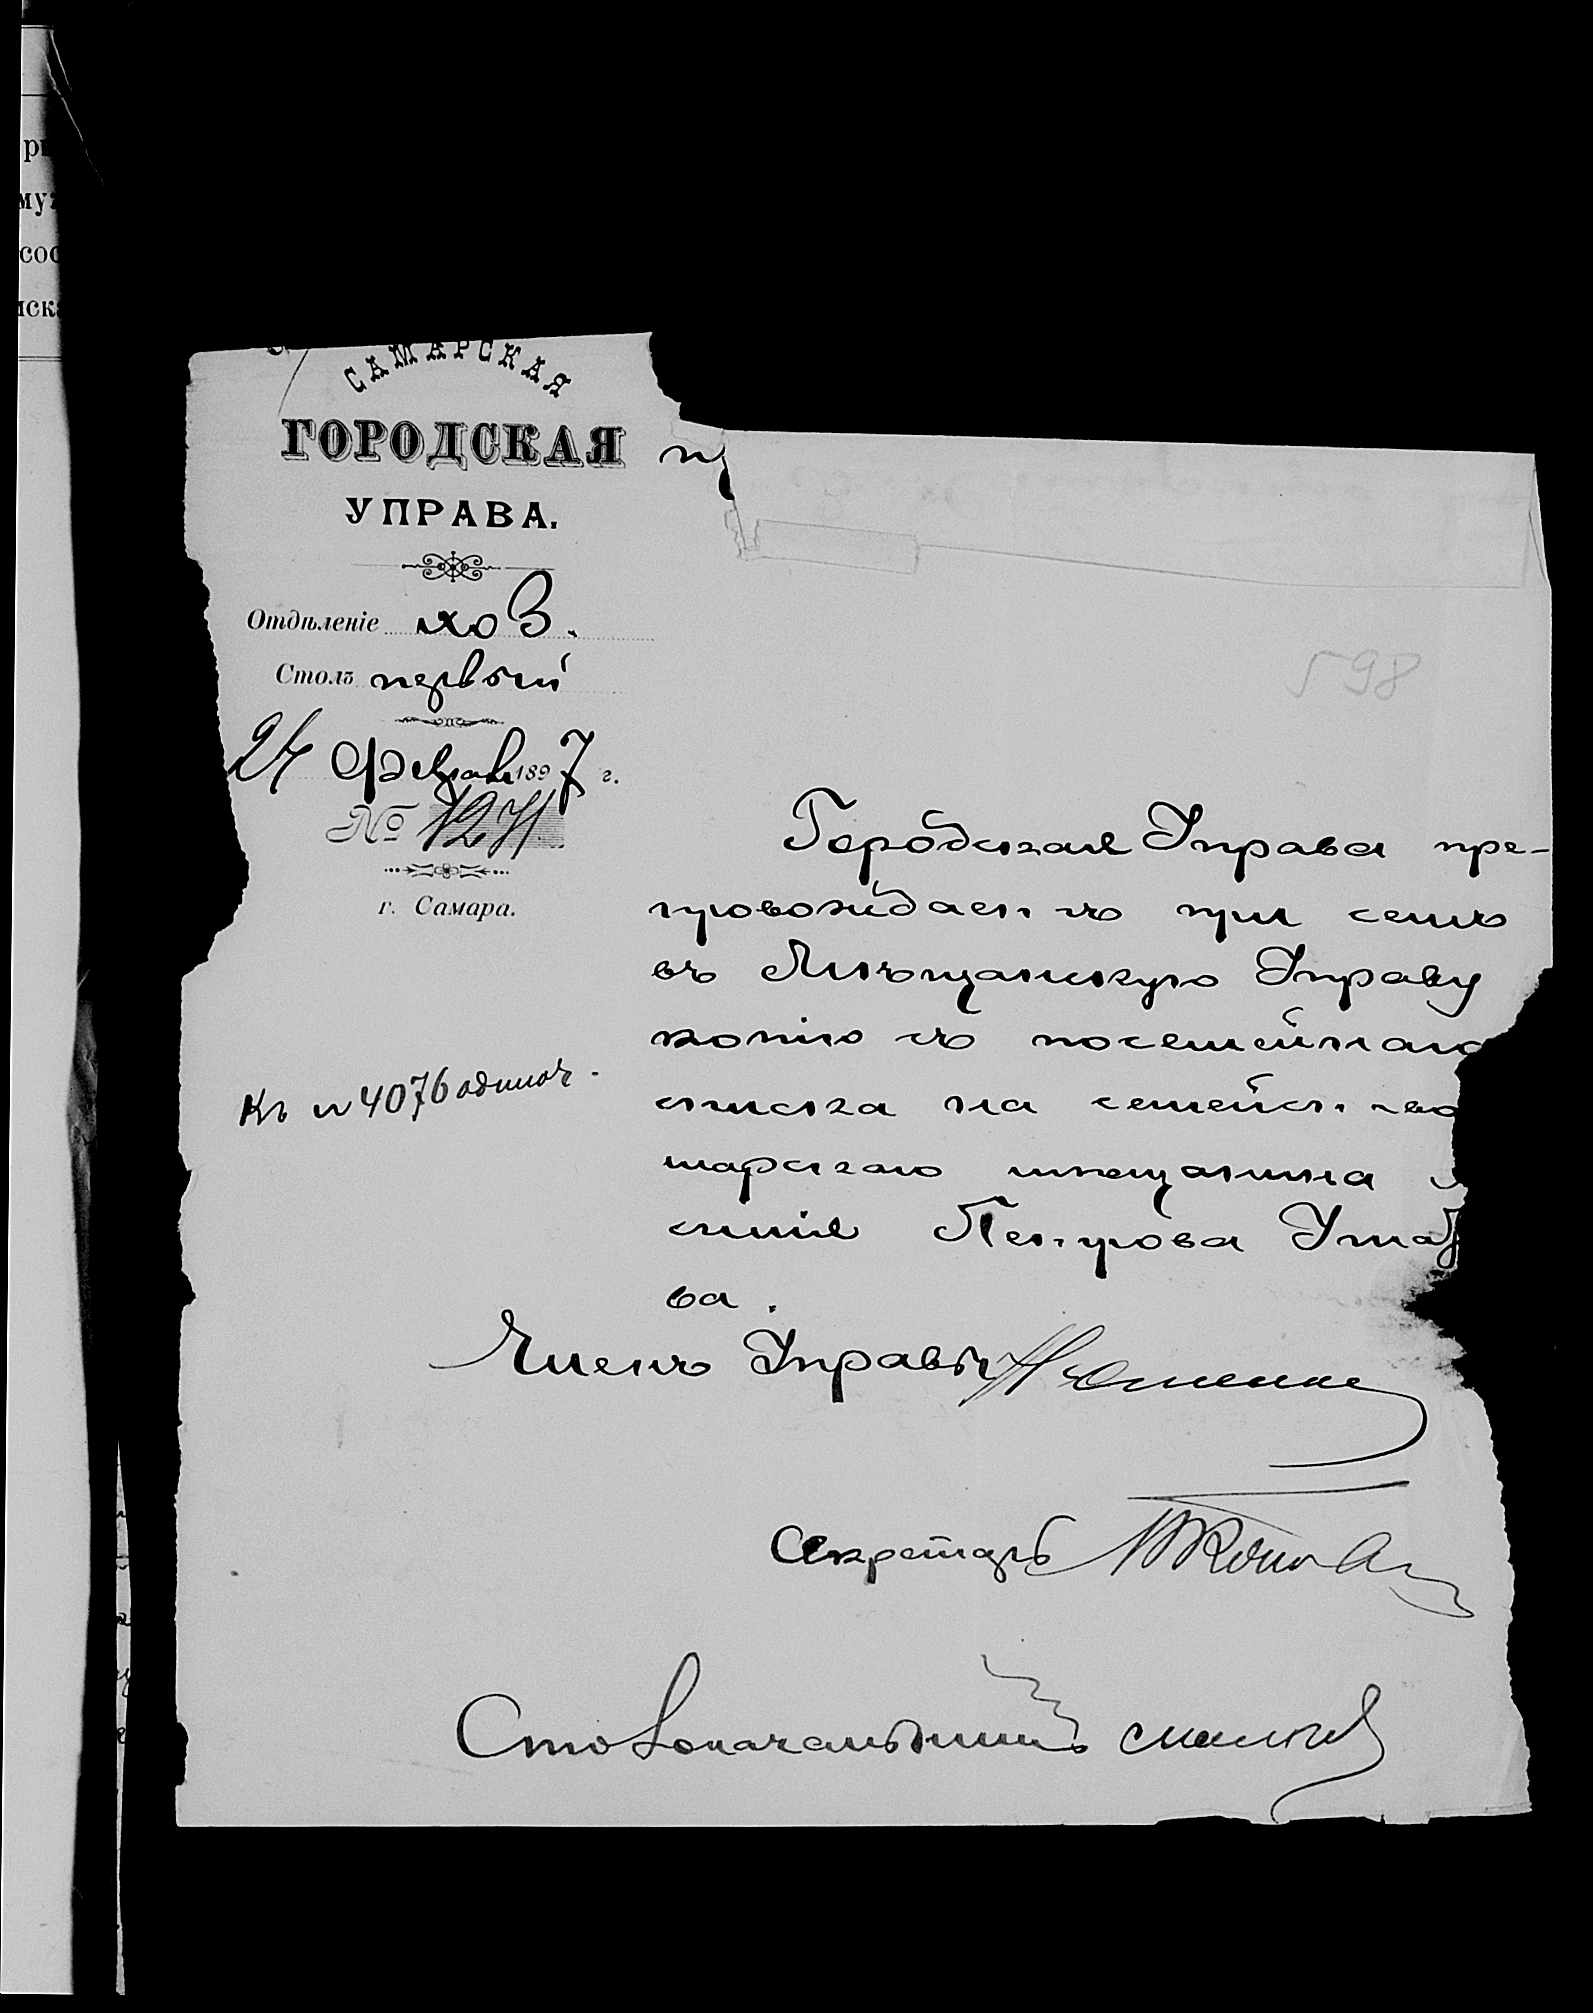 САМАРСКАЯ
ГОРОДСКАЯ
УПРАВА.
Отдѣленіе хоз.
Столъ первый
24 Февраля 1897 г.
№ 1271
г. Самара.
598
Городская Управа пре-
провождаетъ при семъ
въ Мѣщанскую Управу
копію съ посемейнаго
списка на семейство
марскаго мѣщанина
Петрова
ва.
Къ № 4076 одиноч.
Членъ Управы
Секретарь
Столоначальникъ